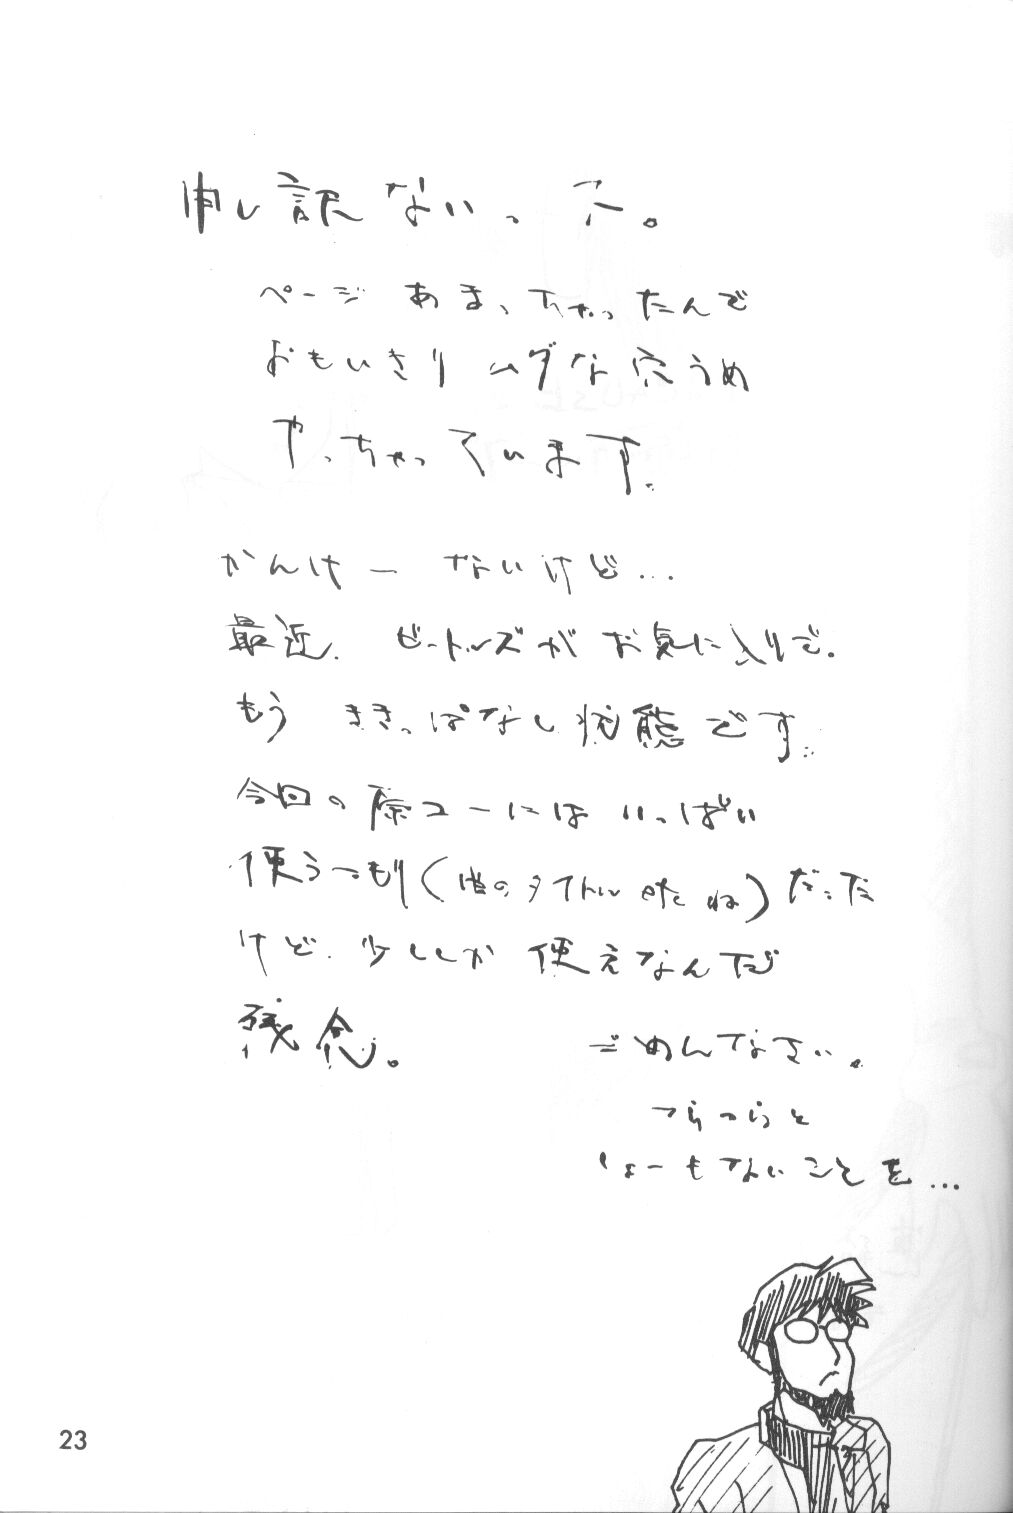 申し訳ないっス。
ページ あまっちゃったんで
おもいきり ムダな穴うめ
やっちゃっています。
かんけー ないけど…
最近. ビートルズが お気に入りで.
もう ききっぱなし状態です。
今回の 原コーには いっぱい
使うつもり(曲のタイトル etc ね)だった
けど. 少ししか 使えなんだ
残念。
ごめんなさい。
つらつらと
しょーもないことを…
23